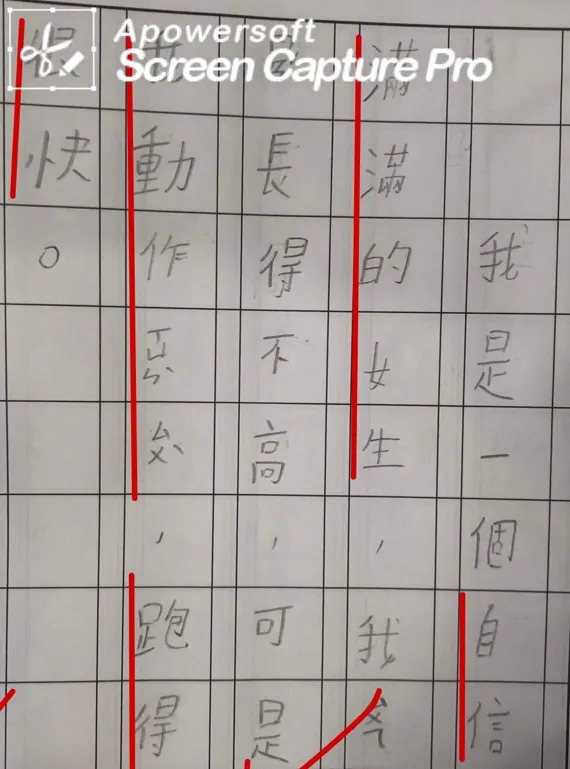 Apowersoft
Screen Capture Pro
我是一個自信
滿滿的女生，我
長得不高，可是
我動作，跑得
很快。